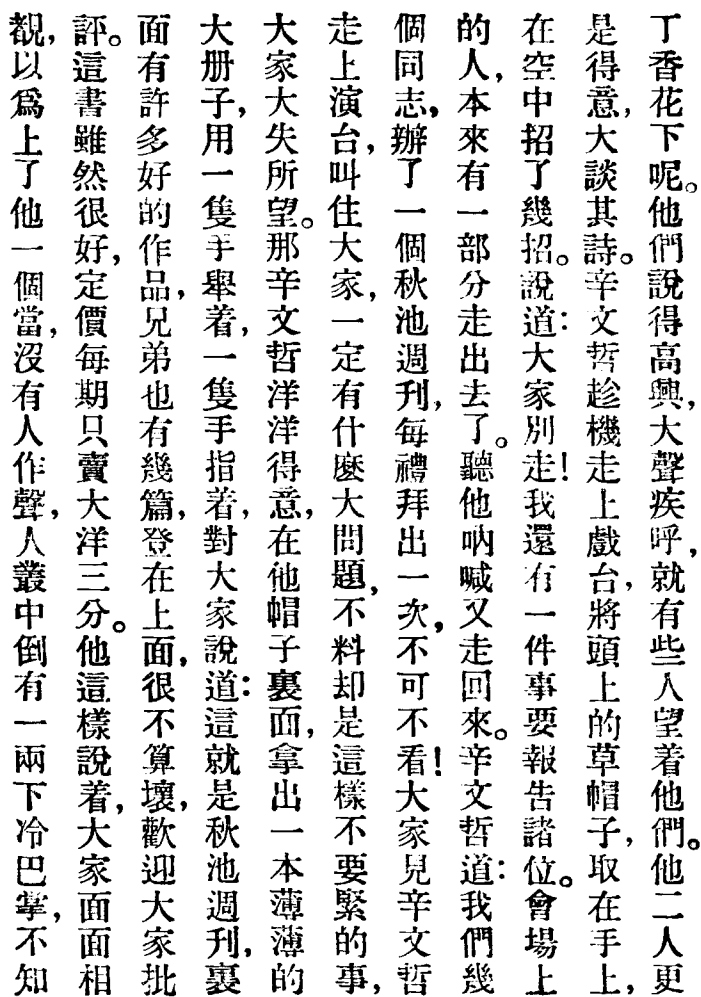 丁香花下呢。他們說得高興，大聲疾呼，就有些人望着他們。他二人更
是得意，大談其詩。辛文哲趁機走上戲台，將頭上的草帽子，取在手上，
在空中招了幾招。說道：大家別走！我還有一件事要報告諸位。會場上
的人，本來有一部分走出去了。聽他吶喊又走回來。辛文哲道：我們幾
個同志，辦了一個秋池週刊，每禮拜出一次，不可不看！大家見辛文哲
走上演台，叫住大家，一定有什麼大問題，不料却是這樣不要緊的事，
大家大失所望。那辛文哲洋洋得意，在他帽子裏面，拿出一本薄薄的
大册子，用一隻手舉着，一隻手指着，對大家說道：這就是秋池週刊，裏
面有許多好的作品，兄弟也有幾篇，登在上面，很不算壞，歡迎大家批
評。這書雖然很好，定價每期只賣大洋三分。他這樣說着，大家面面相
覩，以爲上了他一個當，沒有人作聲，人叢中倒有一兩下冷巴掌，不知